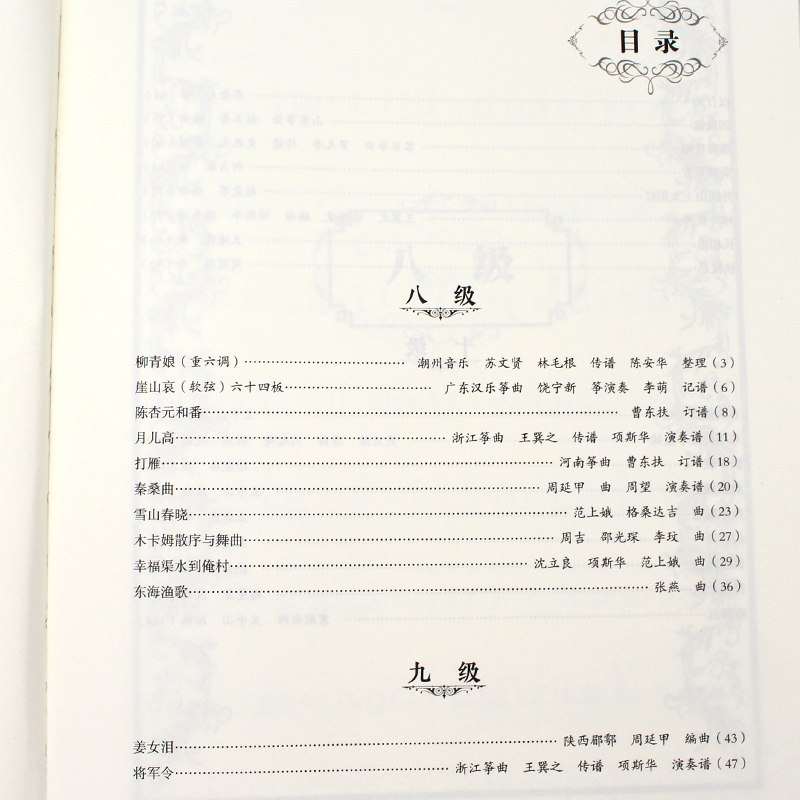 目录
八级
柳青娘（重六调）……潮州音乐 苏文贤 林毛根 传谱 陈安华 整理（3）
崖山哀（软弦）六十四板……广东汉乐筝曲 饶宁新 筝演奏 李萌 记谱（6）
陈杏元和番……曹东扶 订谱（8）
月儿高……浙江筝曲 王巽之 传谱 项斯华 演奏谱（11）
打雁……河南筝曲 曹东扶 订谱（18）
秦桑曲……周延甲 曲 周望 演奏谱（20）
雪山春晓……范上娥 格桑达吉 曲（23）
木卡姆散序与舞曲……周吉 邵光琛 李玟 曲（27）
幸福渠水到俺村……沈立良 项斯华 范上娥 曲（29）
东海渔歌……张燕 曲（36）
九级
姜女泪……陕西郿鄠 周延甲 编曲（43）
将军令……浙江筝曲 王巽之 传谱 项斯华 演奏谱（47）